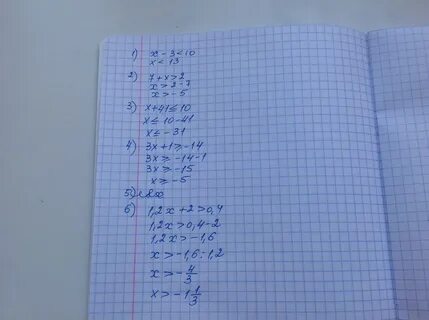 1) x - 3 < 10
x < 13
2) 7 + x > 2
x > 2 - 7
x > - 5
3) x + 41 ≤ 10
x ≤ 10 - 41
x ≤ - 31
4) 3x + 1 ≥ -14
3x ≥ -14 - 1
3x ≥ -15
x ≥ -5
5)
6) 1,2x + 2 > 0,4
1,2x > 0,4 - 2
1,2x > -1,6
x > -1,6 : 1,2
x > - 4/3
x > -1 1/3